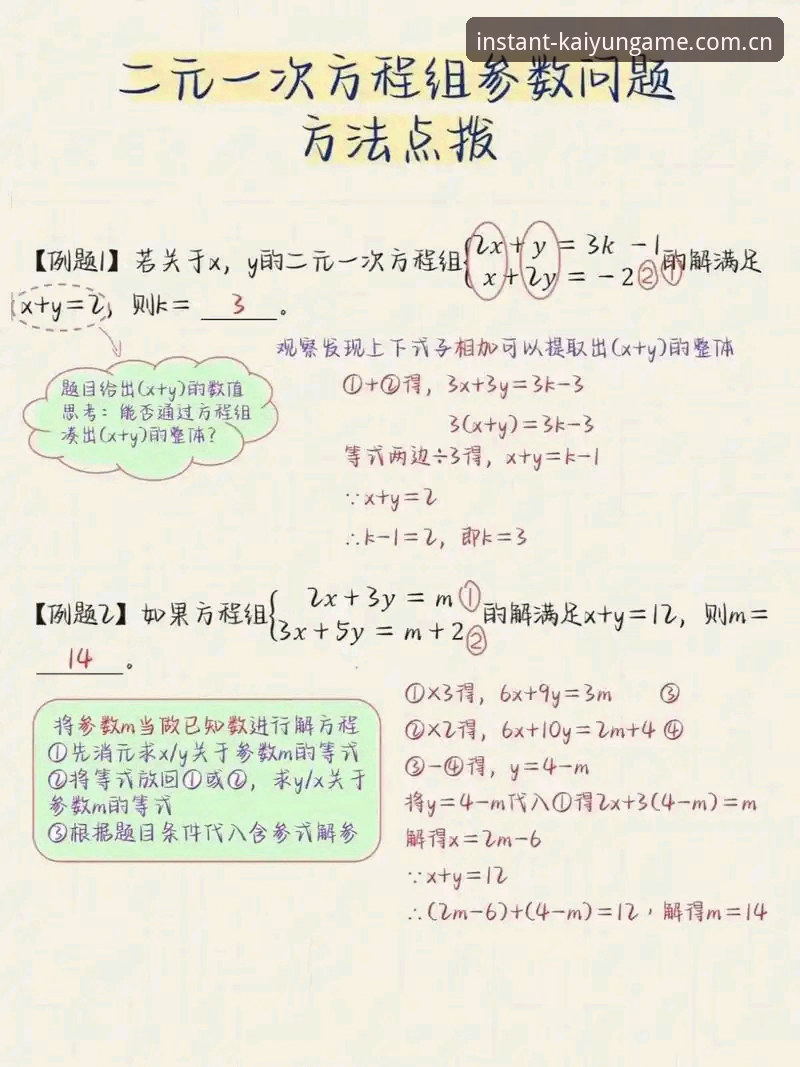 instant-kaiyungame.com.cn
二元一次方程组参数问题
方法点拨
【例题1】若关于x，y的二元一次方程组{2x+y=3k-1 ①
x+2y=-2 ②的解满足
x+y=2，则k= 3 。
观察发现上下式子相加可以提取出(x+y)的整体
题目给出(x+y)的数值
思考：能否通过方程组
凑出(x+y)的整体？
①+②得，3x+3y=3k-3
3(x+y)=3k-3
等式两边÷3得，x+y=k-1
∵x+y=2
∴k-1=2，即k=3
【例题2】如果方程组{2x+3y=m ①
3x+5y=m+2 ②的解满足x+y=12，则m=
14 。
将参数m当做已知数进行解方程
①先消元求x/y关于参数m的等式
②将等式放回①或②，求y/x关于
参数m的等式
③根据题目条件代入含参式解参
①×3得，6x+9y=3m ③
②×2得，6x+10y=2m+4 ④
③-④得，y=4-m
将y=4-m代入①得2x+3(4-m)=m
解得x=2m-6
∵x+y=12
∴(2m-6)+(4-m)=12，解得m=14